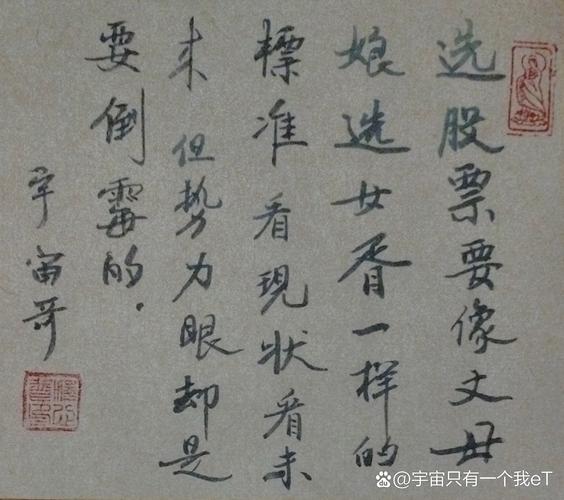 选股票要像丈母
娘选女胥一样的
標准看现状看未
来但势力眼却是
要倒霉的.
宇宙哥
@宇宙只有一个我eT